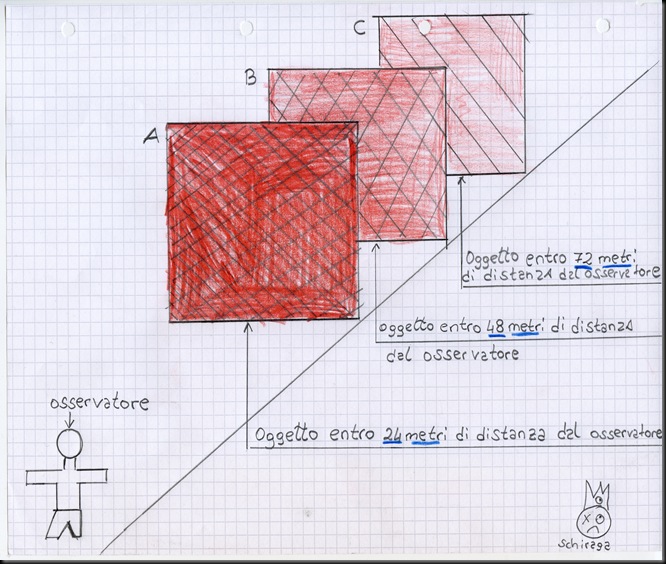 C
B
A
Oggetto entro 72 metri
di distanza dal osservatore
oggetto entro 48 metri di distanza
dal osservatore
osservatore
Oggetto entro 24 metri di distanza dal osservatore
schiraga